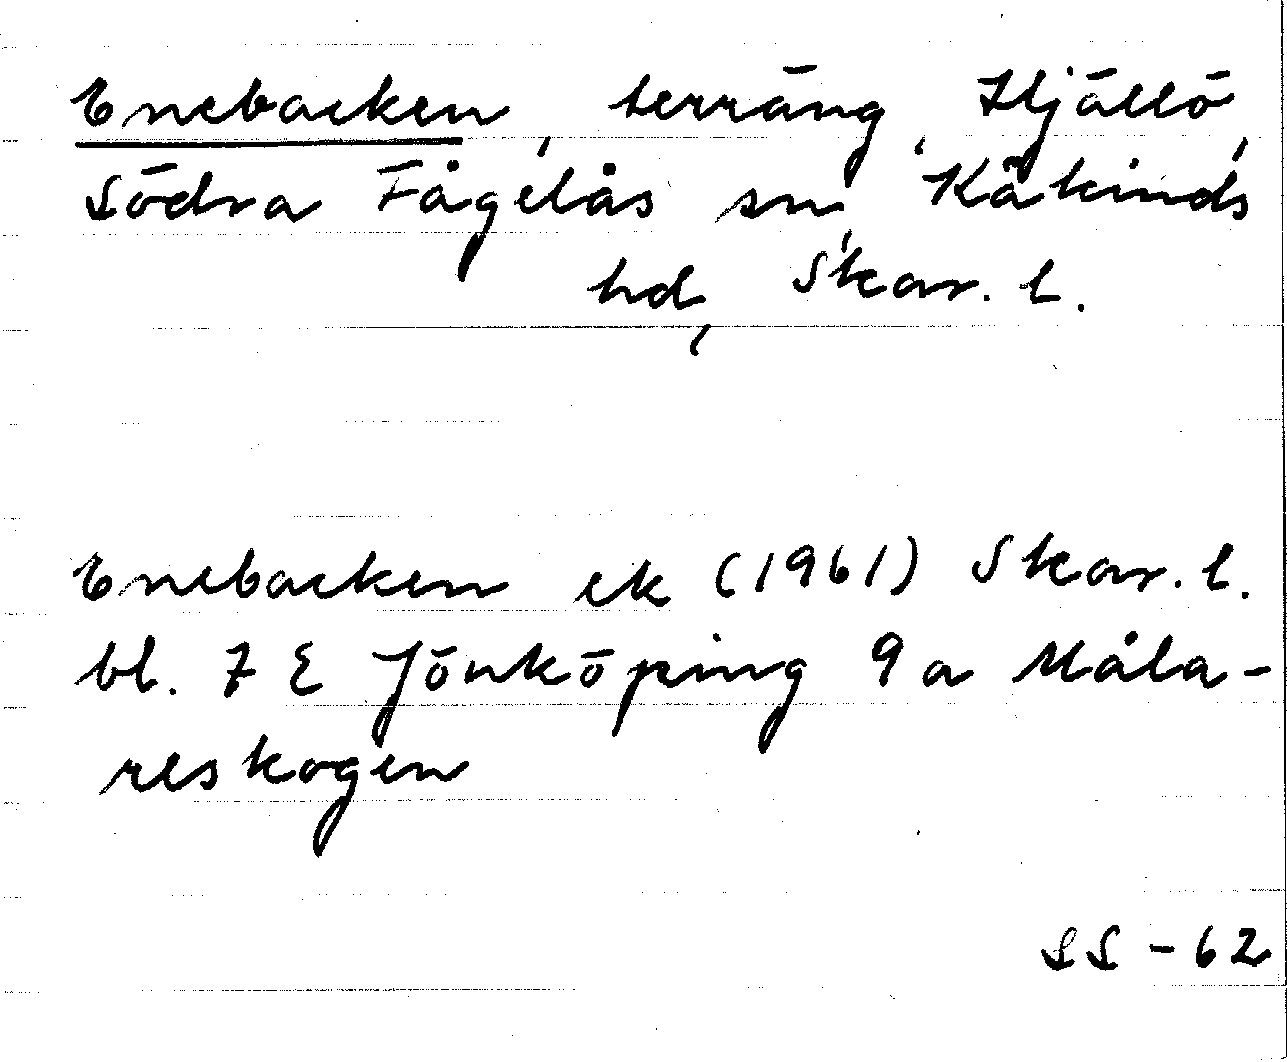 Enebacken, terräng, Hjällö,
Södra Fågelås sn, Kåkinds
hd, Skar. l.
Enebacken ek (1961) Skar. l.
bl. 7 E Jönköping 9 a Måla-
reskogen
SS - 62